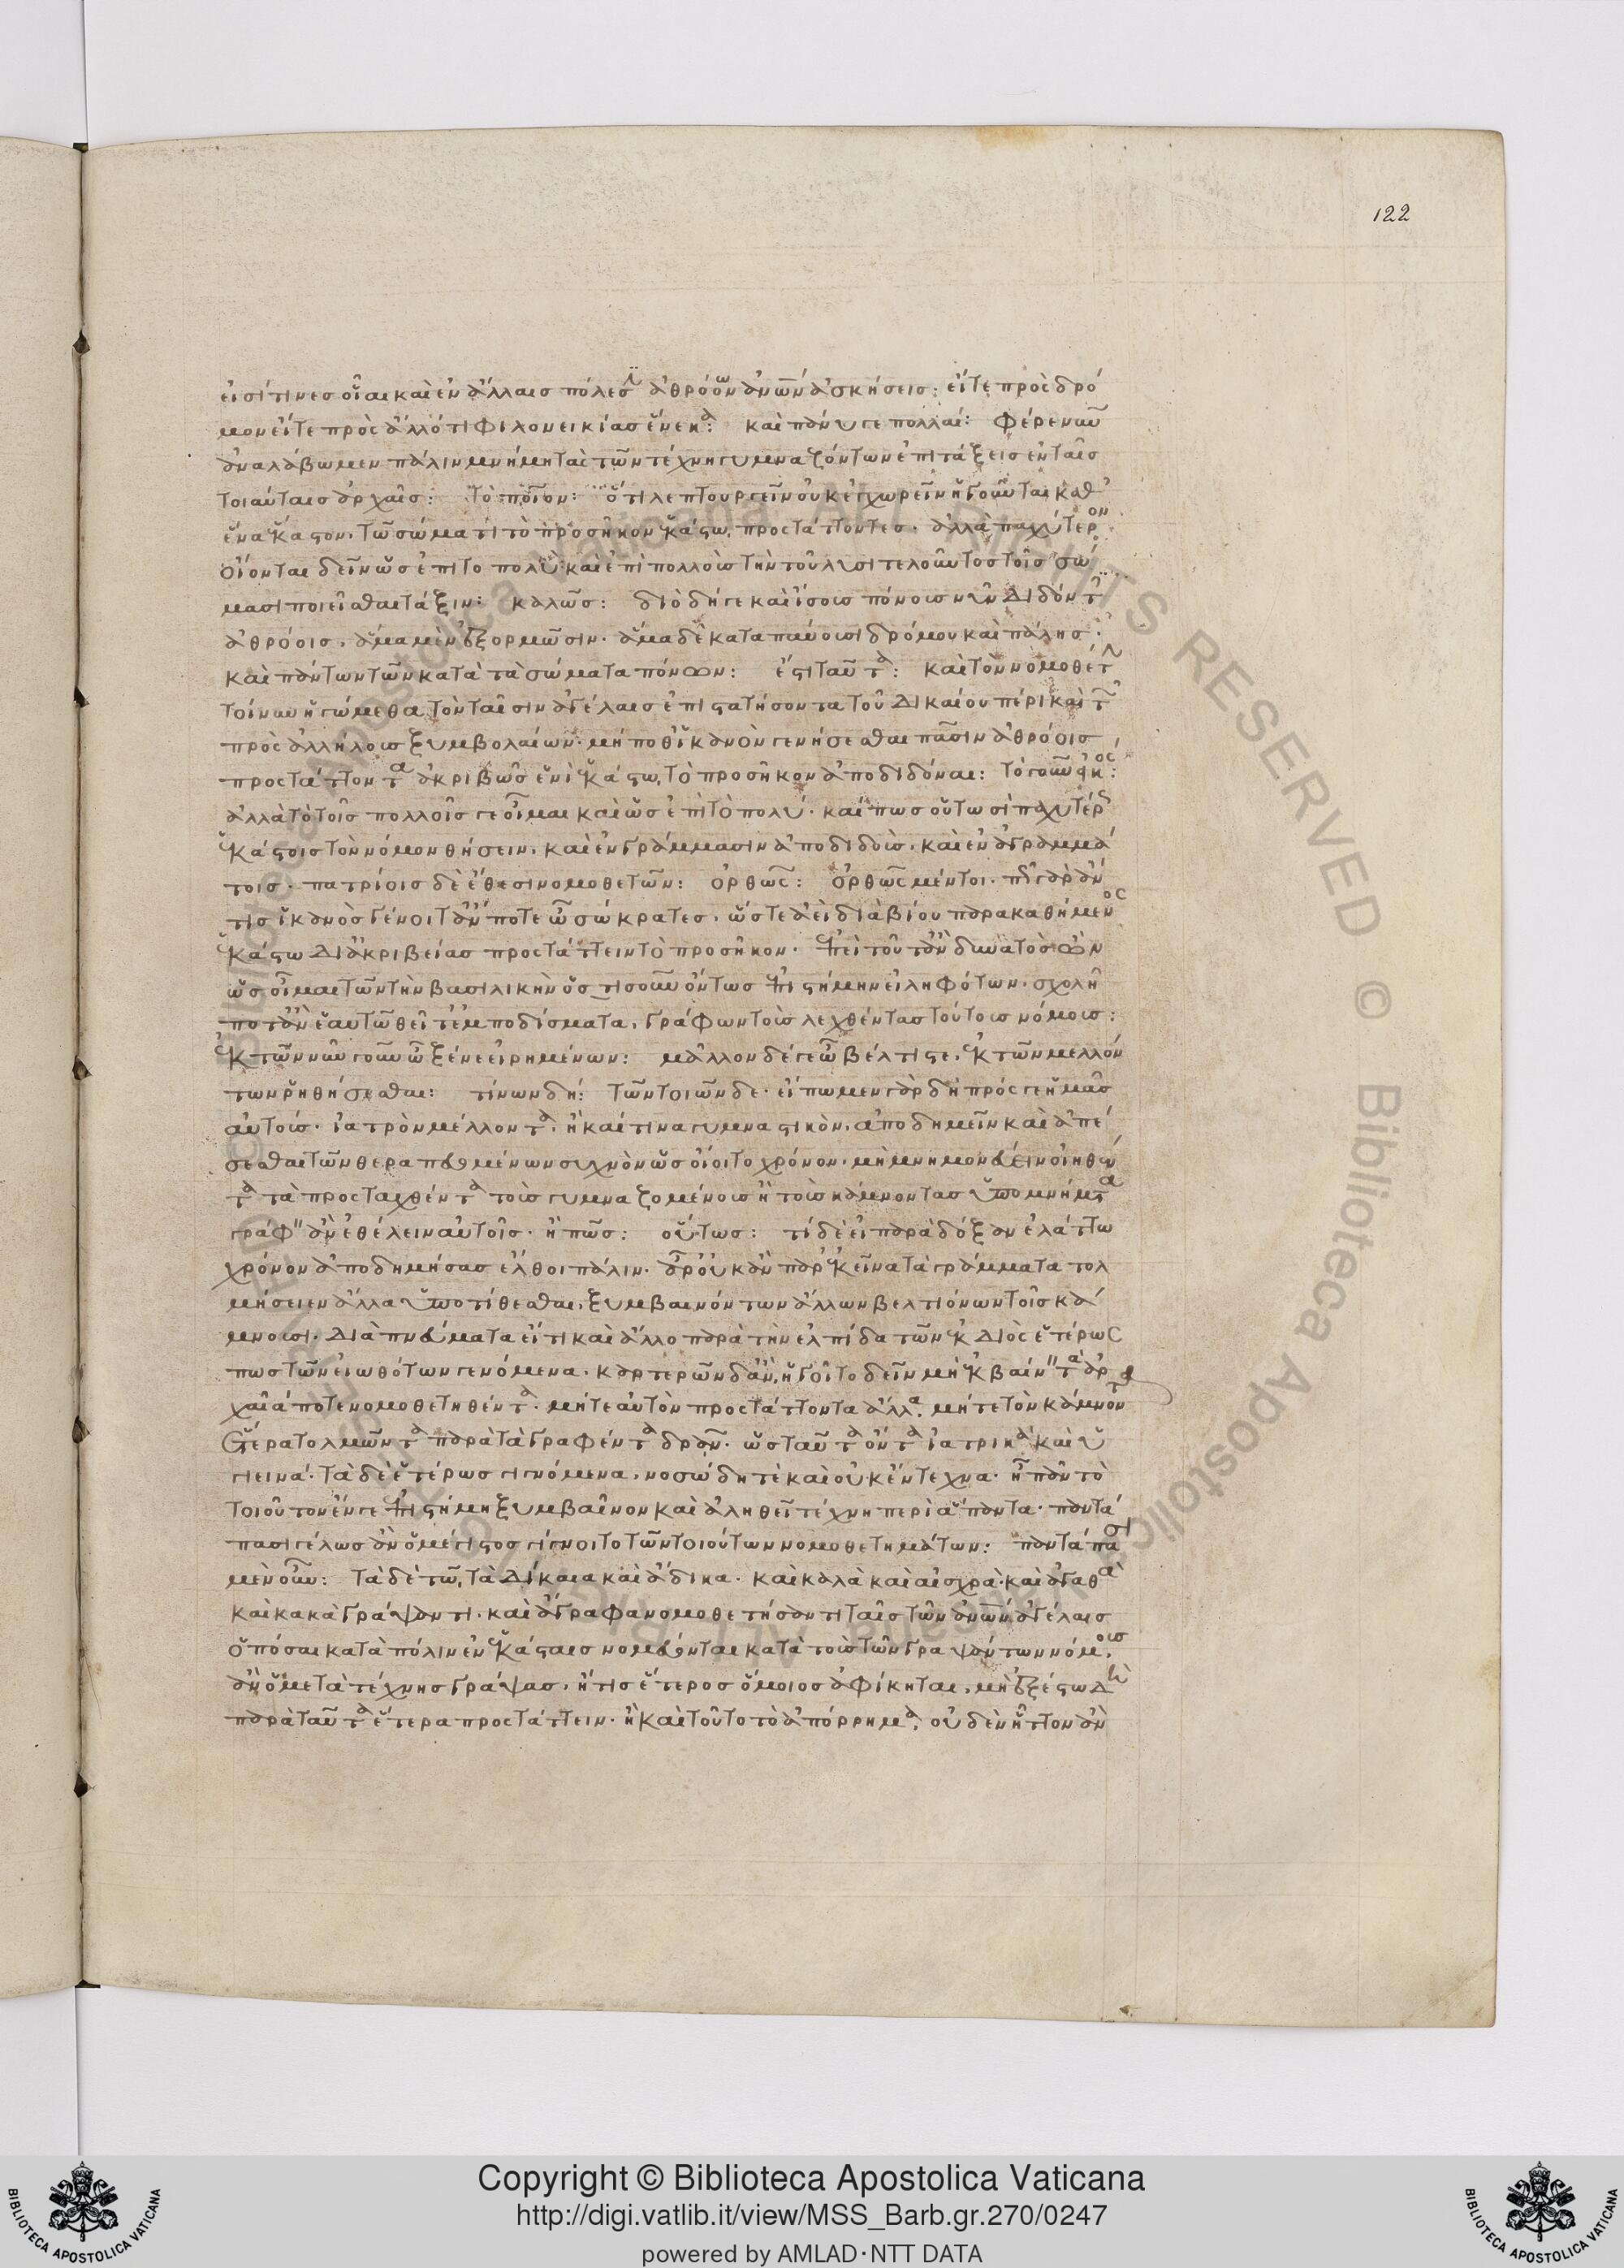 122
εἰσί τινες οἷαι καὶ ἐν ἄλλαις πόλεσ ἀθρόων ἀνῶν ἀσκήσεις: εἴτε πρὸς δρό
μον εἴτε πρὸς ἄλλό τι φιλονεικίας ἕνεκα: καὶ πάνυ γε πολλαί: φέρε νῦν
ἀναλάβωμεν πάλιν μνήμῃ τὰς τῶν τέχνῃ γυμναζόντων ἐπιτάξεις ἐν ταῖς
τοιαύταις ἀρχαῖς: τὸ ποῖον: ὅτι λεπτουργεῖν οὐκ ἐγχωρεῖν ἡγοῦνται καθ'
ἕνα ἕκαστον. τῶ σώματι τὸ προσῆκον ἑκάστω προστάττοντες. ἀλλὰ παχύτερον
οἴονται δεῖν ὡς ἐπὶ τὸ πολὺ καὶ ἐπὶ πολλοὺς τὴν τοῦ λυσιτελοῦντος τοῖς σώ
μασι ποιεῖσθαι τάξιν: καλῶς: διὸ δή γε καὶ ἴσους πόνους νῦν διδόντ
ἀθρόοις. ἅμα μὲν ἐξορμῶσιν. ἅμα δὲ καταπαύουσι δρόμου καὶ πάλης.
καὶ πάντων τῶν κατὰ τὰ σώματα πόνων: ἔστι ταῦτα: καὶ τὸν νομοθέτ
τοίνυν ἡγώμεθα τὸν ταῖσιν ἀγέλαις ἐπιστατήσοντα τοῦ δικαίου πέρι καὶ τ
πρὸς ἀλλήλους ξυμβολαίων. μή ποθ' ἱκανὸν γενήσεσθαι πᾶσιν ἀθρόοις
προστάττοντα ἀκριβῶς ἑνὶ ἑκάστω τὸ προσῆκον ἀποδιδόναι: τὸ γοῦν εἰκός:
ἀλλὰ τὸ τοῖς πολλοῖς γε οἶμαι καὶ ὡς ἐπὶ τὸ πολύ. καί πως οὕτωσὶ παχυτέρ
ἑκάστοις τὸν νόμον θήσειν. καὶ ἐν γράμμασιν ἀποδιδοὺς. καὶ ἐν ἀγραμμά
τοις. πατρίοις δὲ ἔθεσι νομοθετῶν: ὀρθῶς: ὀρθῶς μέντοι. πῶς γὰρ ἄν
τις ἱκανὸς γένοιτ' ἄν ποτε ὦ σώκρατες. ὥστε ἀεὶ διὰ βίου παρακαθήμενος
ἑκάστω δι' ἀκριβείας προστάττειν τὸ προσῆκον. ἐπεὶ τοῦτ' ἂν δυνατὸς ὢν
ὡς οἶμαι τῶν τὴν βασιλικὴν ὁστισοῦν ὄντως ἐπιστήμην εἰληφότων. σχολῆ
ποτ' ἂν ἑαυτῶ θεῖτ' ἐμποδίσματα. γράφων τοὺς λεχθέντας τούτους νόμους:
ἐκ τῶν νῦν γοῦν ὦ ξένε εἰρημένων: μᾶλλον δέ γε ὦ βέλτιστε. ἐκ τῶν μελλόν
των ῥηθήσεσθαι: τίνων δή: τῶν τοιῶνδε. εἴπωμεν γὰρ δὴ πρός γε ἡμᾶς
αὐτούς. ἰατρὸν μέλλοντα. ἢ καί τινα γυμναστικὸν. ἀποδημεῖν καὶ ἀπέ
σεσθαι τῶν θεραπευομένων συχνὸν ὡς οἴοιτο χρόνον. μὴ μνημονεύειν οἰηθέν
τα τὰ προσταχθέντα τοὺς γυμναζομένους ἢ τοὺς κάμνοντας ὑπομνήματα
γράφειν ἂν ἐθέλειν αὐτοῖς. ἢ πῶς: οὕτως: τί δὲ εἰ παρὰ δόξαν ἐλάττω
χρόνον ἀποδημήσας ἔλθοι πάλιν. ἆρ' οὐκ ἂν παρ' ἐκεῖνα τὰ γράμματα τολ
μήσειεν ἄλλα ὑποτίθεσθαι. ξυμβαινόντων ἄλλων βελτιόνων τοῖς κά
μνουσι. διὰ πνεύματα εἴ τι καὶ ἄλλο παρὰ τὴν ἐλπίδα τῶν ἐκ διὸς ἑτέρως
πως τῶν εἰωθότων γενόμενα. καρτερῶν δ' ἂν ἡγοῖτο δεῖν μὴ ἐκβαίνειν τὰ ἀρ
χαῖά ποτε νομοθετηθέντα. μήτε αὐτὸν προστάττοντα ἄλλα. μήτε τὸν κάμνοντα
ἕτερα τολμῶντα παρὰ τὰ γραφέντα δρᾶν. ὡς ταῦτα ὄντα ἰατρικὰ καὶ ὑ
γιεινά. τὰ δὲ ἑτέρως γιγνόμενα. νοσώδη τὲ καὶ οὐκ ἔντεχνα. ἢ πᾶν τὸ
τοιοῦτον ἔν γε ἐπιστήμη ξυμβαῖνον καὶ ἀληθεῖ τέχνη περὶ ἅπαντα. παντά
πασι γέλως ἂν ὁ μέγιστος γίγνοιτο τῶν τοιούτων νομοθετημάτων: παντάπασι
μὲν οὖν: τῶ δὲ τὰ δίκαια καὶ ἄδικα. καὶ καλὰ καὶ αἰσχρὰ. καὶ ἀγαθὰ
καὶ κακὰ γράψαντι. καὶ ἄγραφα νομοθετήσαντι ταῖς τῶν ἀνῶν ἀγέλαις
ὁπόσαι κατὰ πόλιν ἐν ἑκάσταις νομεύονται κατὰ τοὺς τῶν γραψάντων νόμους.
ἂν ὁ μετὰ τέχνης γράψας. ἤ τις ἕτερος ὅμοιος ἀφίκηται. μὴ ἐξέστω δὴ
παρὰ ταῦτα ἕτερα προστάττειν. ἢ καὶ τοῦτο τὸ ἀπόρρημα. οὐδὲν ἧττον ἂν
Copyright © Biblioteca Apostolica Vaticana
http://digi.vatlib.it/view/MSS_Barb.gr.270/0247
powered by AMLAD·NTT DATA